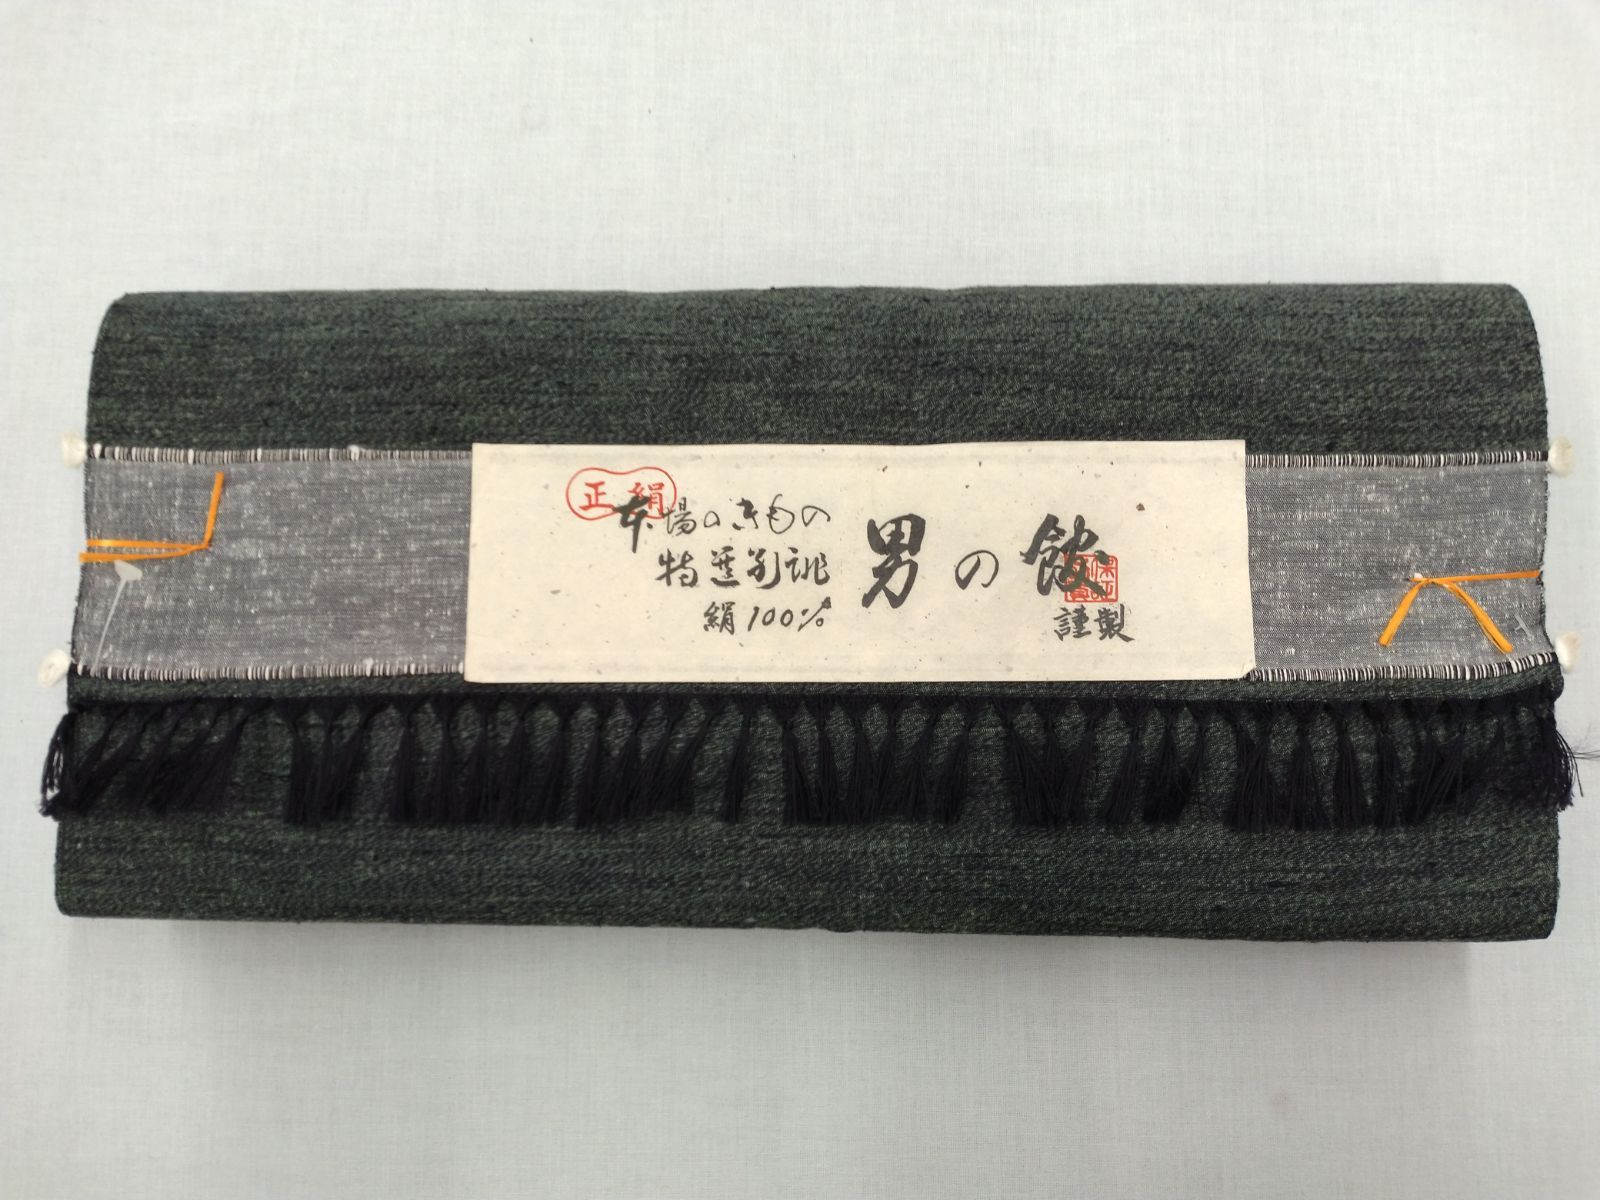 正絹
本場のきもの
特選別誂
絹100%
男の
謹製